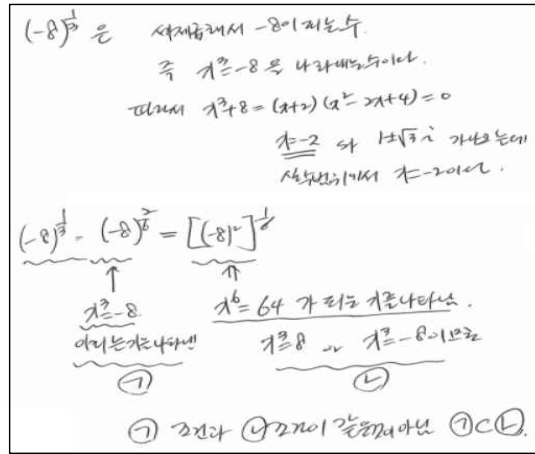 (-8)^{\frac{1}{3}} 은 세제곱해서 -8이 되는 수.
즉 x³=-8 을 나타내는 수이다.
따라서 x³+8 = (x+2)(x²-2x+4)=0
x=-2 와 1±√3 i 가 나오는데
실수범위에서 x=-2이다.
(-8)^{\frac{1}{3}} = (-8)^{\frac{2}{6}} = [(-8)²]^{\frac{1}{6}}
↑ ↑
x³=-8 x⁶=64 가 되는 거를 나타냄.
이 되는 거를 나타낸 x³=8 x³=-8 이므로
㉠ ㉡
㉠ 조건과 ㉡조건이 같은게 아님 ㉠⊂㉡.